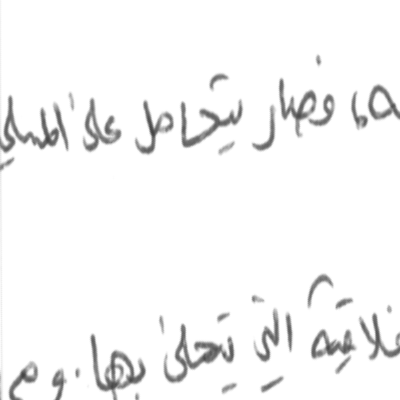 ه، فصار يتحامل على المسلمي
خلاقية التي يتحلى بها. و مع